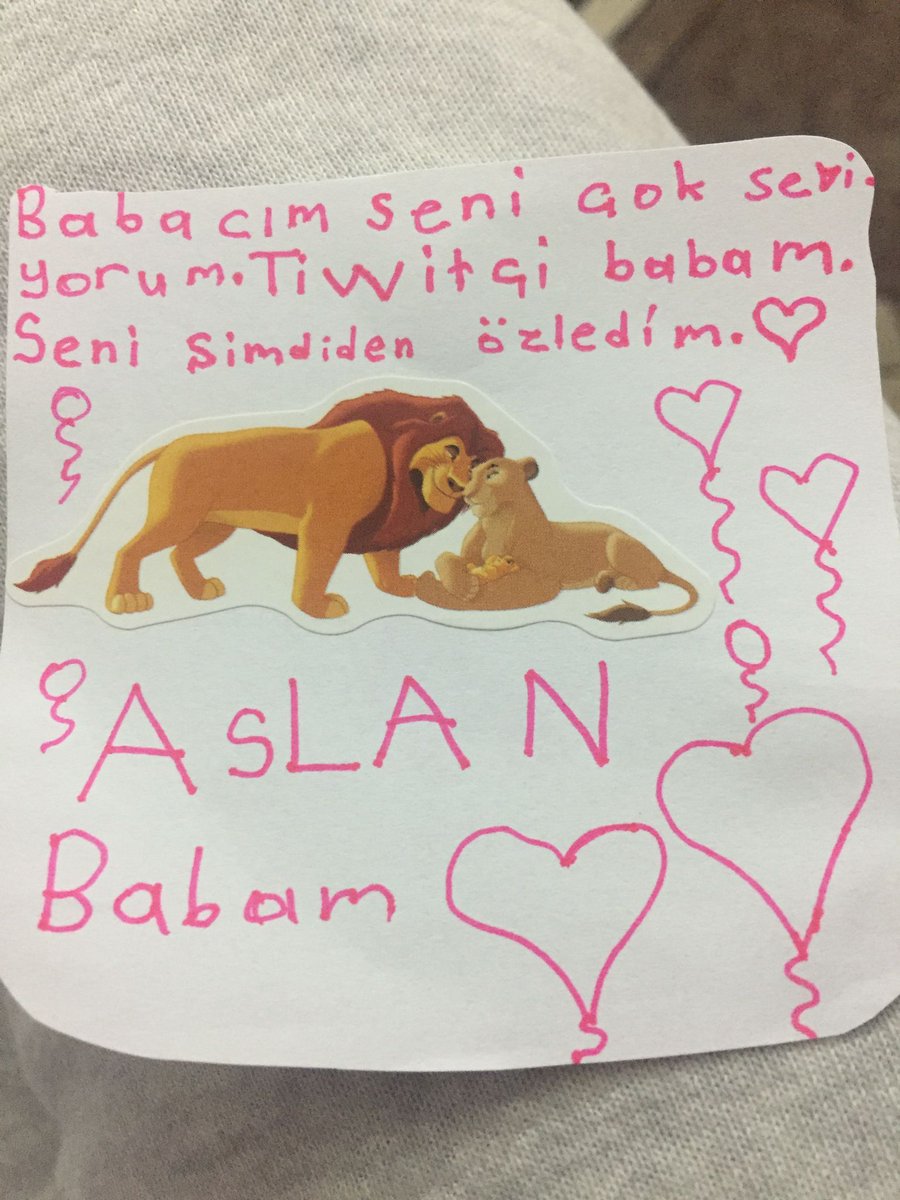 Babacım seni çok sevi.
yorum. Tiwitçi babam.
Seni şimdiden özledim.
ASLAN
Babam